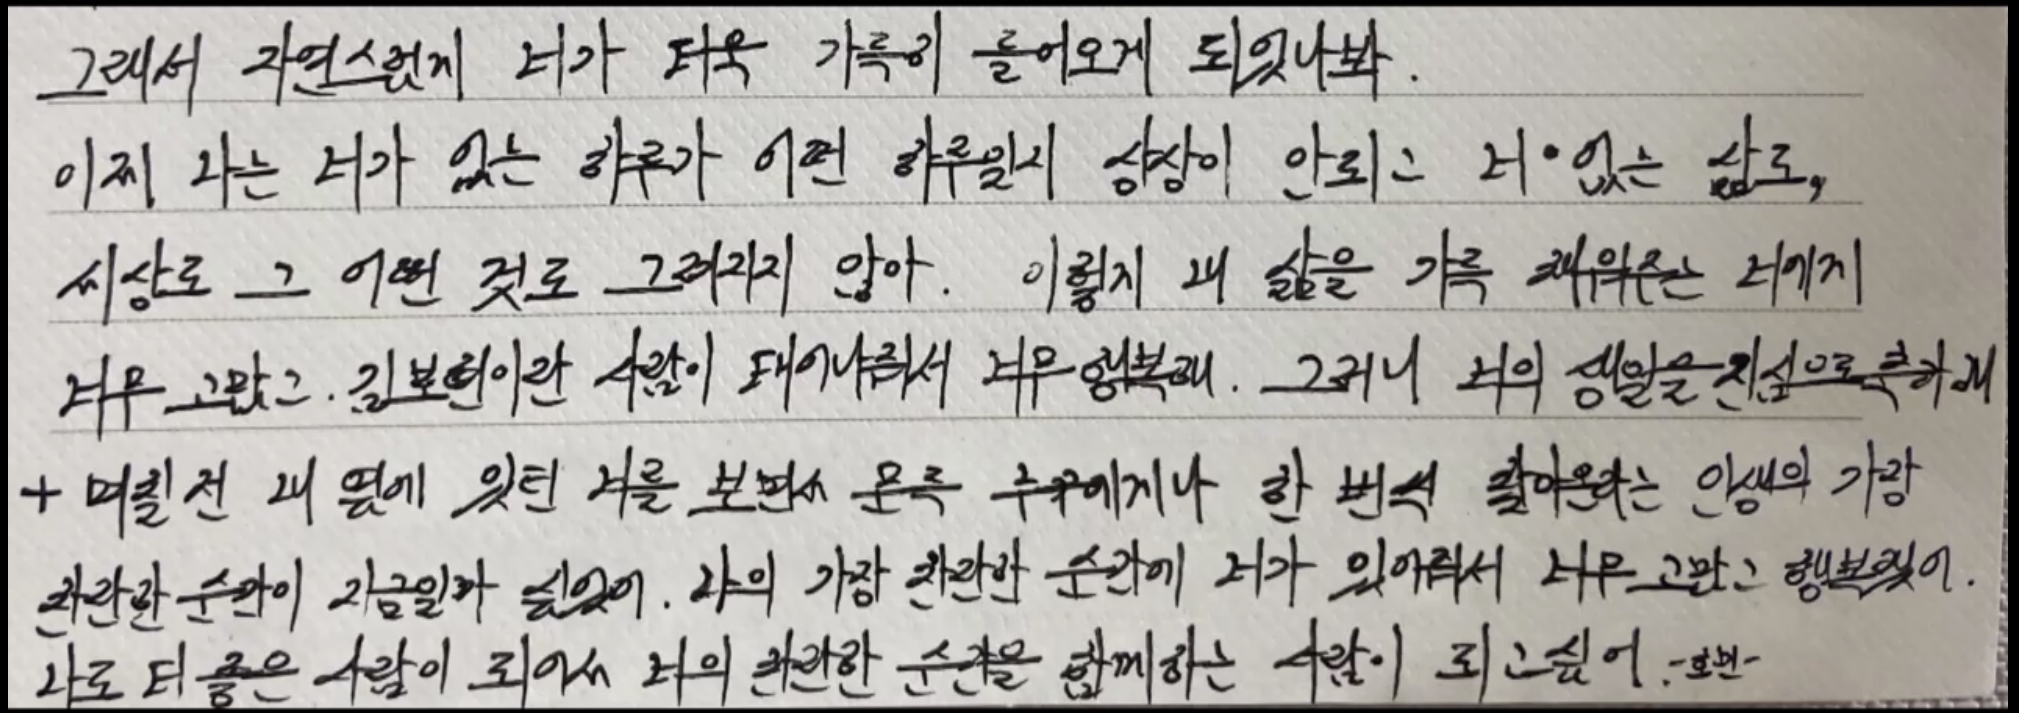 그래서 자연스럽게 너가 더욱 가득히 들어오게 되었나봐.
이제 나는 너가 없는 하루가 어떤 하루일지 상상이 안되고 너 없는 삶도,
세상도 그 어떤 것도 그려지지 않아. 이렇게 내 삶을 가득 채워주는 너에게
너무 고맙고. 이란 사람이 태어나줘서 너무 행복해. 그러니 너의 생일을 진심으로 축하해
+ 며칠 전 내 옆에 있던 너를 보면서 문득 누구에게나 한 번씩 찾아온다는 인생의 가장
찬란한 순간이 지금일까 싶었어. 나의 가장 찬란한 순간에 너가 있어줘서 너무 고맙고 행복했어.
나도 더 좋은 사람이 되어서 너의 찬란한 순간을 함께하는 사람이 되고싶어.